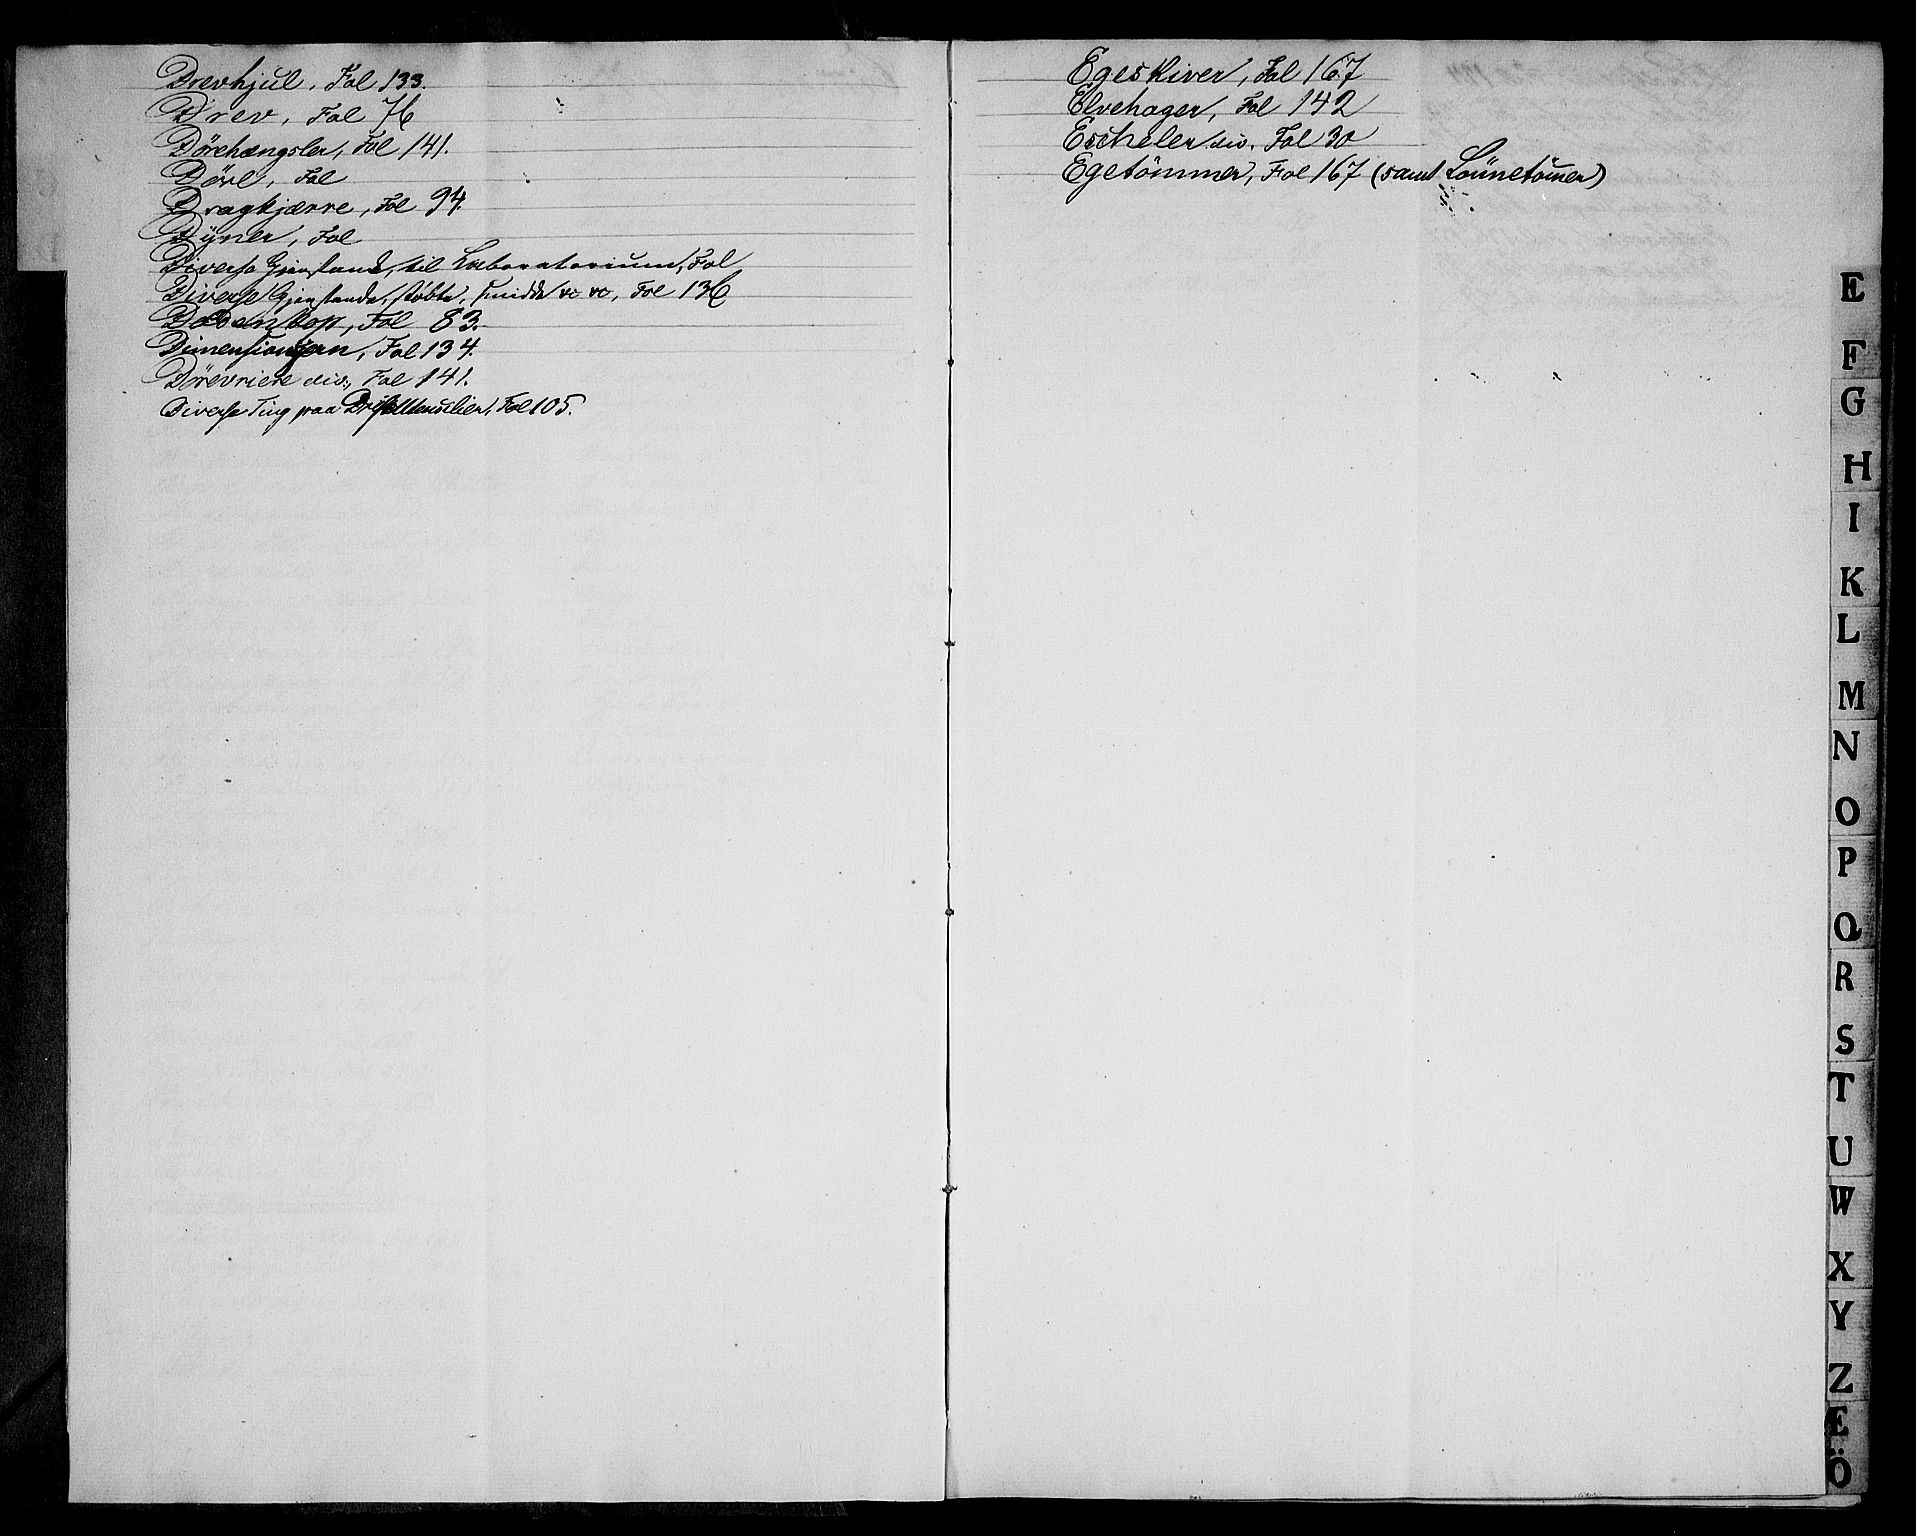 Drevhjul, Fol 133.
Drev, Fol 76
Dörehængsler, Fol 141.
Dörl, Fol
Dragkjærre, Fol 94.
Dyner, Fol
Diverse Gjenstand, til Laboratorium, Fol
Diverse Gjenstande, støbte, smidde vc vc, Fol 136
Fol 83.
Dimensionsjern, Fol 134.
Dörevriere div., Fol 141.
Diverse Ting paa Fol 105.
Egeskiver, Fol 167
Elvehager, Fol 142
Escheler div. Fol 30
Egetömmer, Fol 167 (samt Lönnetömer)
E
F
G
H
I
K
L
M
N
O
P
Q
R
S
T
U
W
X
Y
Z
Æ
Ö